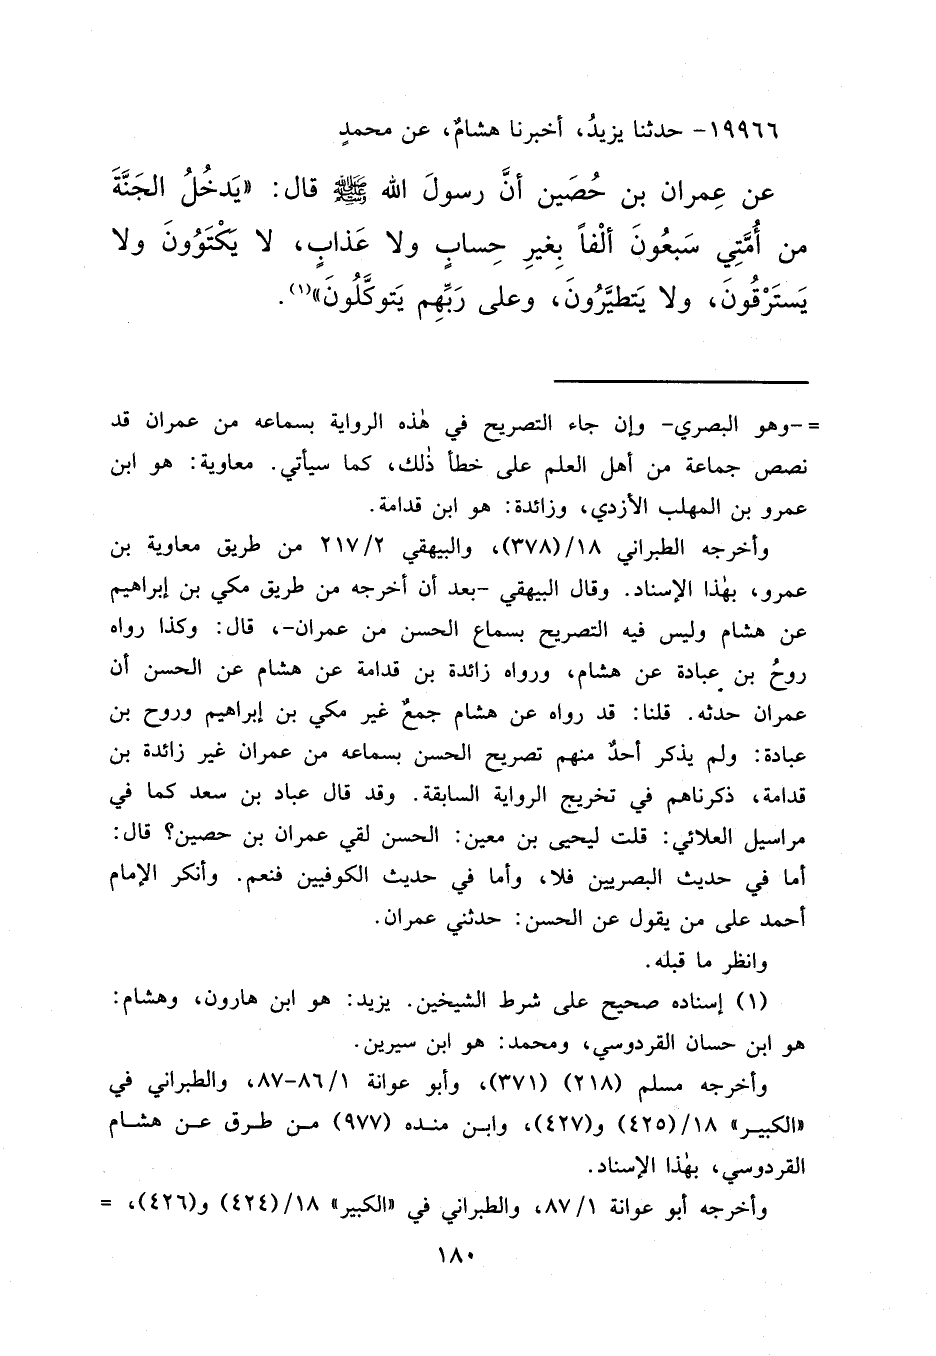 ١٩٩٦٦- حدثنا يزيدُ، أخبرنا هشامٌ، عن محمدٍ
عن عِمران بن حُصَين أنَّ رسولَ الله ﷺ قال: «يَدخُلُ الجَنَّةَ
من أُمَّتِي سَبعُونَ ألْفاً بِغيرِ حِسابٍ ولا عَذابٍ، لا يَكْتَوُونَ ولا
يَستَرْقُونَ، ولا يَتطيَّرُونَ، وعلى رَبِّهِم يَتوكَّلُونَ»(١).
= -وهو البصري- وإن جاء التصريح في هٰذه الرواية بسماعه من عمران قد
نصص جماعة من أهل العلم على خطأ ذٰلك، كما سيأتي. معاوية: هو ابن
عمرو بن المهلب الأزدي، وزائدة: هو ابن قدامة.
وأخرجه الطبراني ١٨/(٣٧٨)، والبيهقي ٢١٧/٢ من طريق معاوية بن
عمرو، بهٰذا الإسناد. وقال البيهقي -بعد أن أخرجه من طريق مكي بن إبراهيم
عن هشام وليس فيه التصريح بسماع الحسن من عمران-، قال: وكذا رواه
روحُ بن عبادة عن هشام، ورواه زائدة بن قدامة عن هشام عن الحسن أن
عمران حدثه. قلنا: قد رواه عن هشام جمعٌ غير مكي بن إبراهيم وروح بن
عبادة: ولم يذكر أحدٌ منهم تصريح الحسن بسماعه من عمران غير زائدة بن
قدامة، ذكرناهم في تخريج الرواية السابقة. وقد قال عباد بن سعد كما في
مراسيل العلائي: قلت ليحيى بن معين: الحسن لقي عمران بن حصين؟ قال:
أما في حديث البصريين فلا، وأما في حديث الكوفيين فنعم. وأنكر الإمام
أحمد على من يقول عن الحسن: حدثني عمران.
وانظر ما قبله.
(١) إسناده صحيح على شرط الشيخين. يزيد: هو ابن هارون، وهشام:
هو ابن حسان القردوسي، ومحمد: هو ابن سيرين.
وأخرجه مسلم (٢١٨) (٣٧١)، وأبو عوانة ٨٦/١-٨٧، والطبراني في
«الكبير» ١٨/(٤٢٥) و(٤٢٧)، وابن منده (٩٧٧) من طرق عن هشام
القردوسي، بهٰذا الإسناد.
وأخرجه أبو عوانة ٨٧/١، والطبراني في «الكبير» ١٨/(٤٢٤) و(٤٢٦)، =
١٨٠